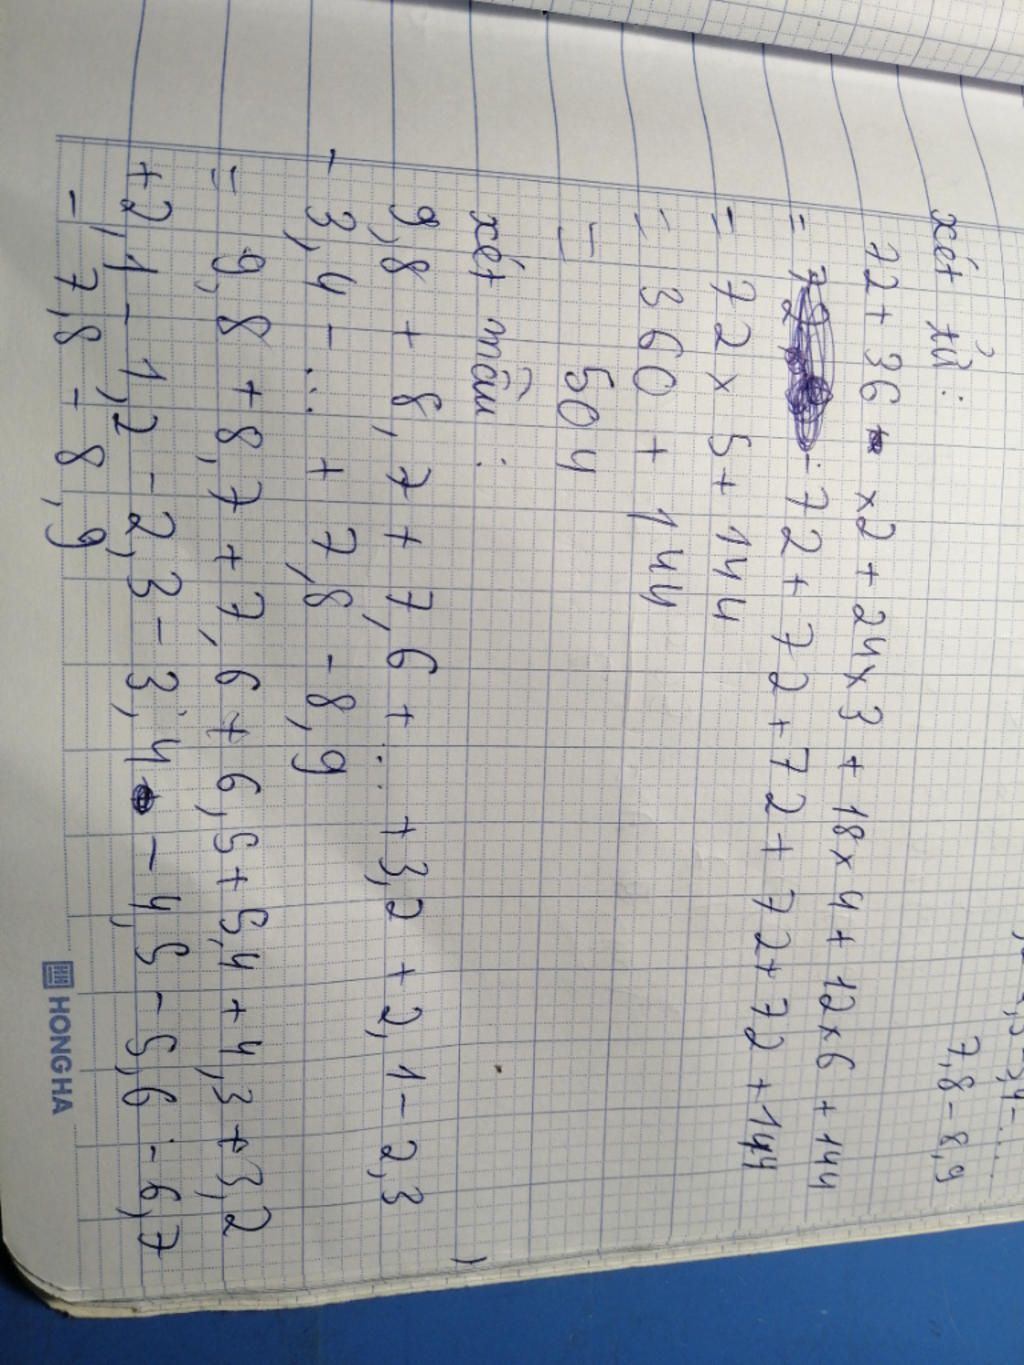 7,8 - 8,9
xét tử:
72 + 36 x 2 + 24 x 3 + 18 x 4 + 12 x 6 + 144
= 72 + 72 + 72 + 72 + 72 + 144
= 72 x 5 + 144
= 360 + 144
= 504
xét mẫu:
9,8 + 8,7 + 7,6 + ... + 3,2 + 2,1 - 2,3
- 3,4 - ... + 7,8 - 8,9
= 9,8 + 8,7 + 7,6 + 6,5 + 5,4 + 4,3 + 3,2
+ 2,1 - 1,2 - 2,3 - 3,4 - 4,5 - 5,6 - 6,7
- 7,8 - 8,9
HONGHA